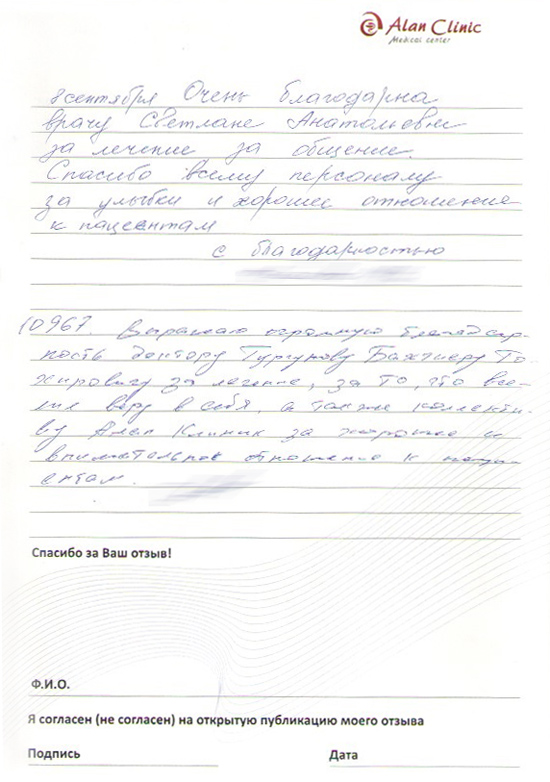 Alan Clinic
Medical center
8 сентября Очень благодарна
врачу Светлане Анатольевне
за лечение за общение.
Спасибо всему персоналу
за улыбки и хорошее отношение
к пациентам
с благодарностью
10967. Выражаю огромную благодар-
ность доктору Тургунову Бахтиеру То-
хировичу за лечение, за то, что все-
лил веру в себя, а также коллекти-
ву Алан Клиник за хорошее и
внимательное отношение к паци-
ентам.
Спасибо за Ваш отзыв!
Ф.И.О.
Я согласен (не согласен) на открытую публикацию моего отзыва
Подпись Дата